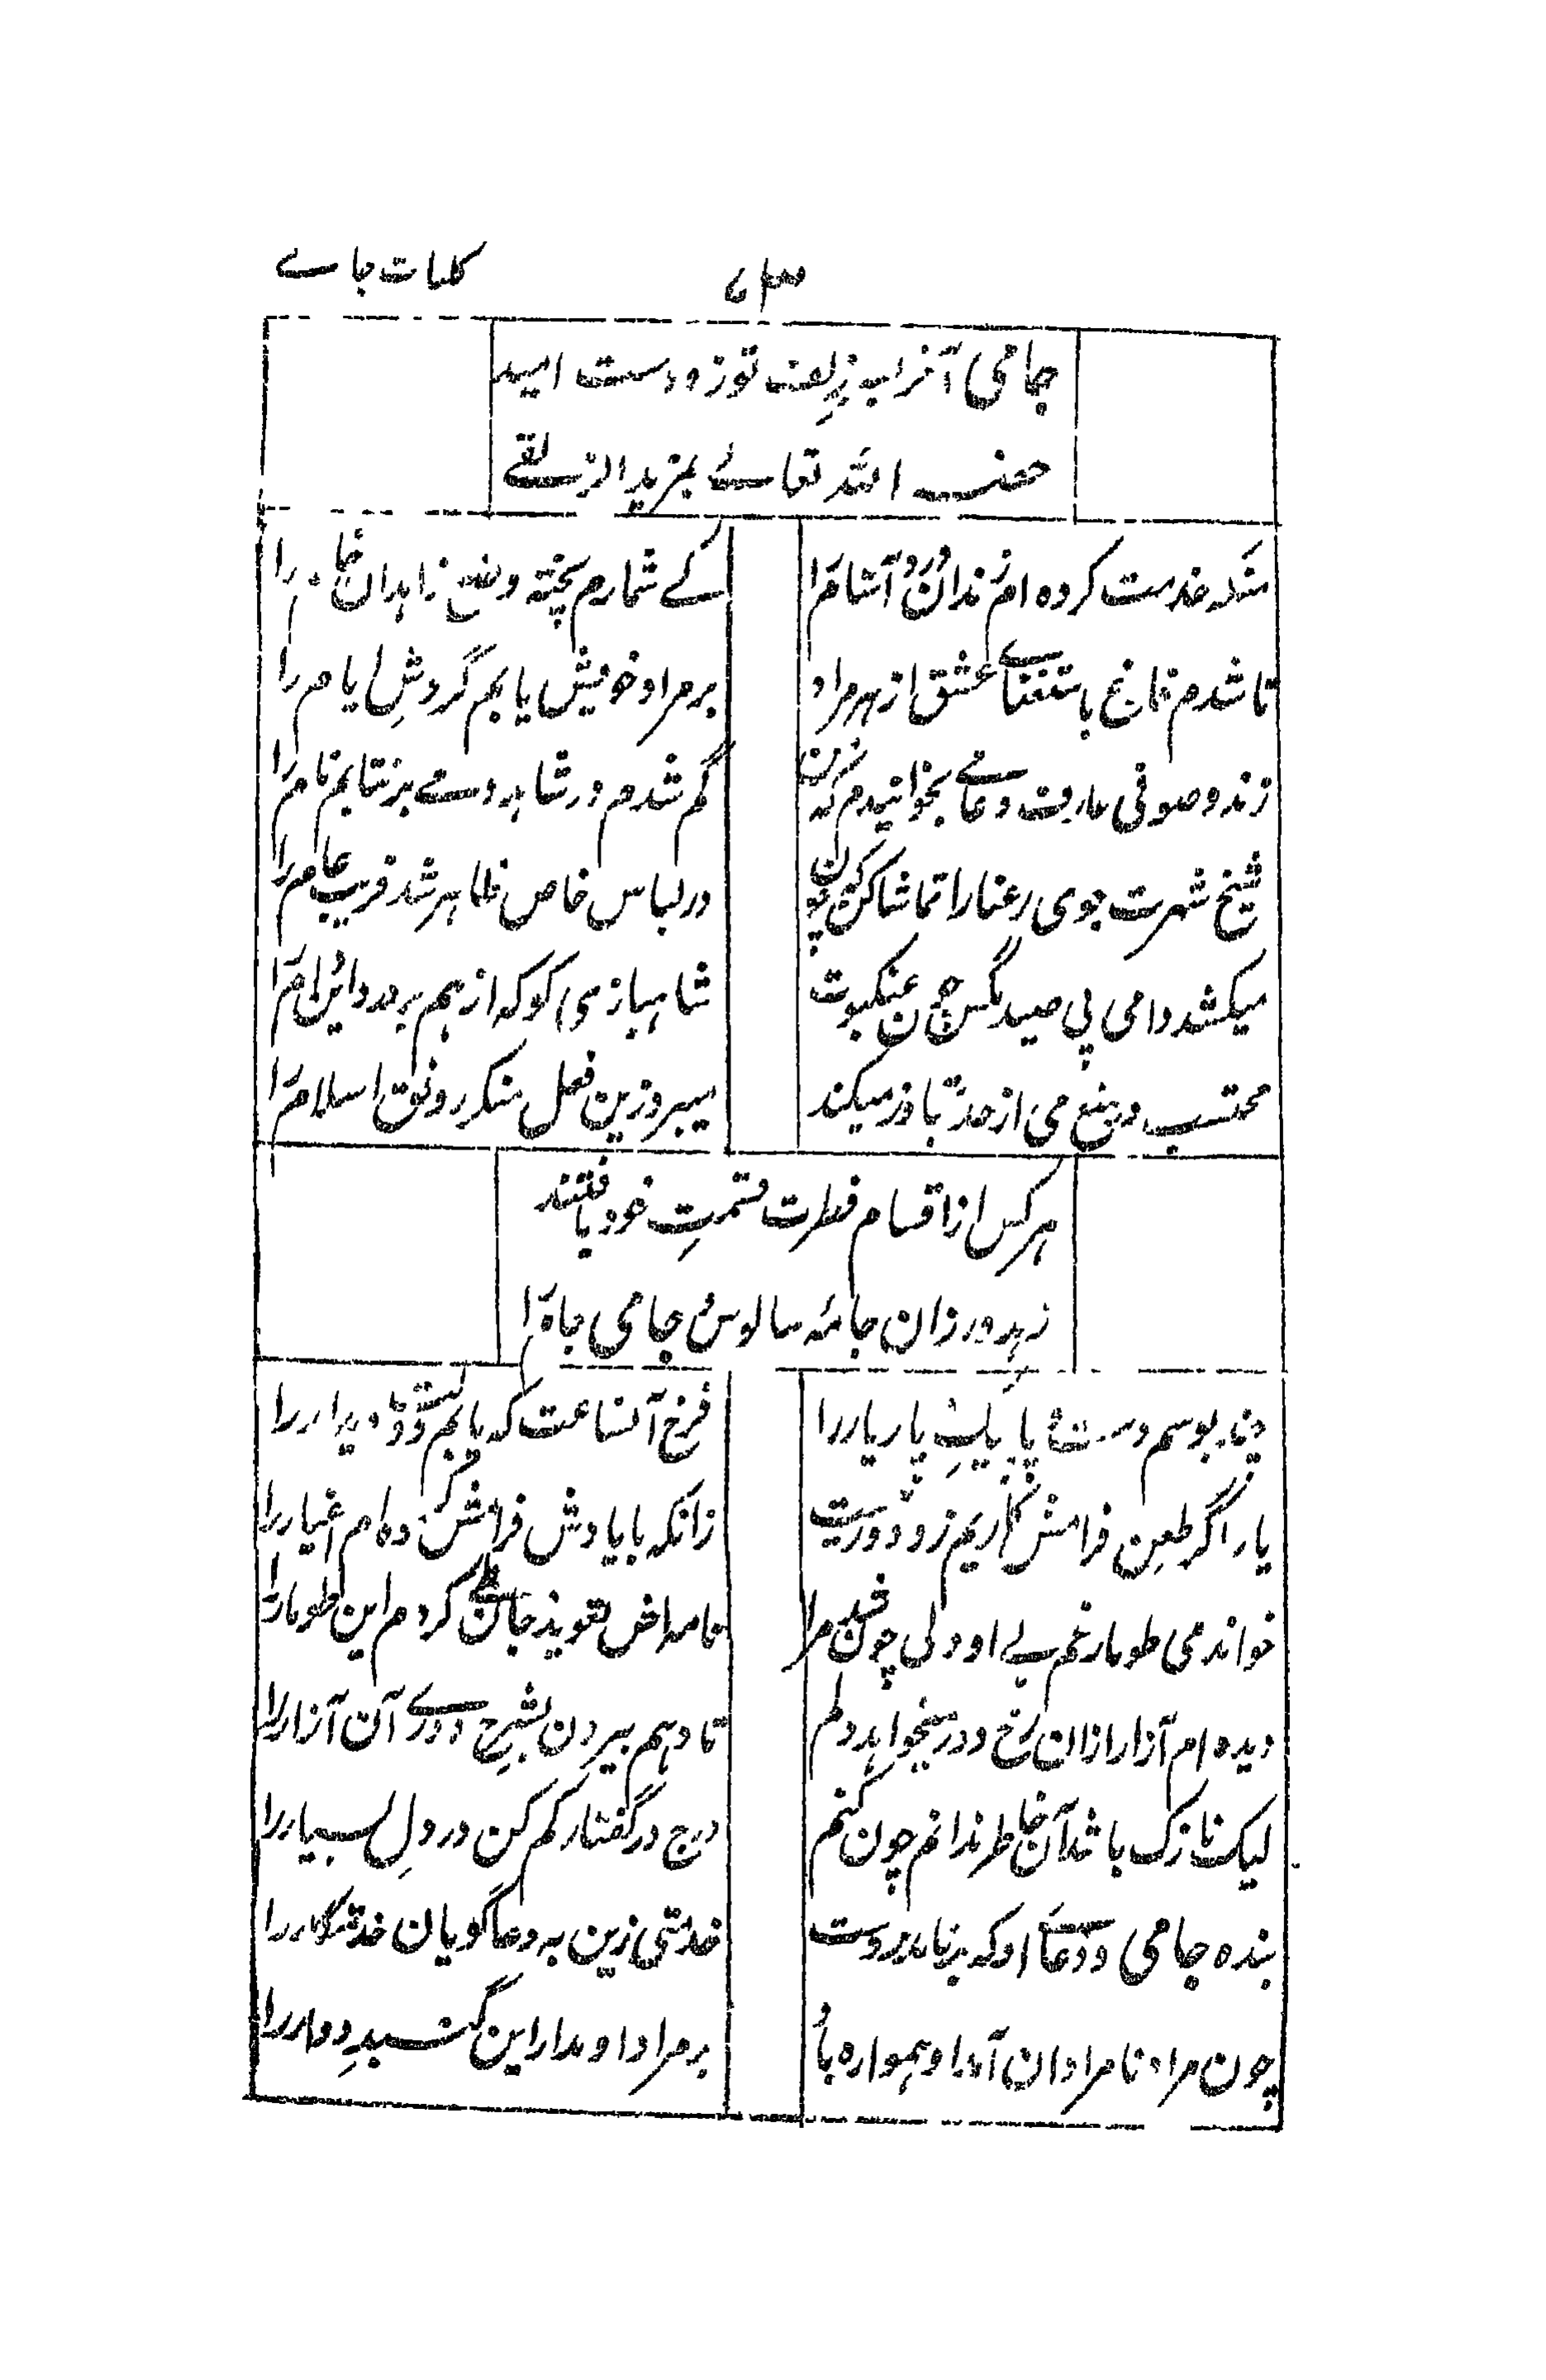 کلیات جامے
۷۳
جامی آخر بہ زلف تو زد دست امید
خصہ اللہ تعالے بمزید الزلفے
منکہ خدمت کردہ ام رندان درد آشام را
کے شمارم پختہ وضع زاہدان خام را
تا شدم فارغ باستغنائے عشق از ہر مراد
بر مراد خویش یابم گردشِ ایام را
رند و صوفی عارف و عامے بخوانیدم کہ من
گم شدم در شاہد و مے بر نتابم نام را
شیخ شہرت جوی رعنا را تماشا کن کہ چون
در لباس خاص ظاہر شد فریب عام را
میکشد دامی پی صید مگس چون عنکبوت
شاہبازی کو کہ از ہم بر درد این دام را
محتسب در منع می از حد تجاوز میکند
میبرد زین فعل منکر رونق اسلام را
ہر کس از اقسام فطرت قسمتِ خود یافتند
زہد ورزان جامۂ سالوس و جامی جام را
بوسم دست و پا پیکِ یار را
فرخ آنساعت کہ یابم دولت دیدار را
یار اگر طعن فرامش کاریم زد دورنیست
زانکہ با یادش فرامش کردہ ام اغیار را
خواندمی طومار غم بے او ولی چون شد مرا
نامہ اش تعویذ جان طے کردم این طومار را
دیدہ ام آزار ازان رخ و در میخواہد دلم
تا دہم بیرون بشرح دورے آن آزار را
لیک نازک باشد آن خاطر ندانم چون کنم
درج در گفتار کم کن درد دلِ بسیار را
بندہ جامی و دعاے او کہ بر ناید ز دست
خدمتی زین بہ دعاگویان خدمتگار را
چون مراد نامرادان آمد او ہموارہ باد
بر مراد او مدار این گنبدِ دوار را